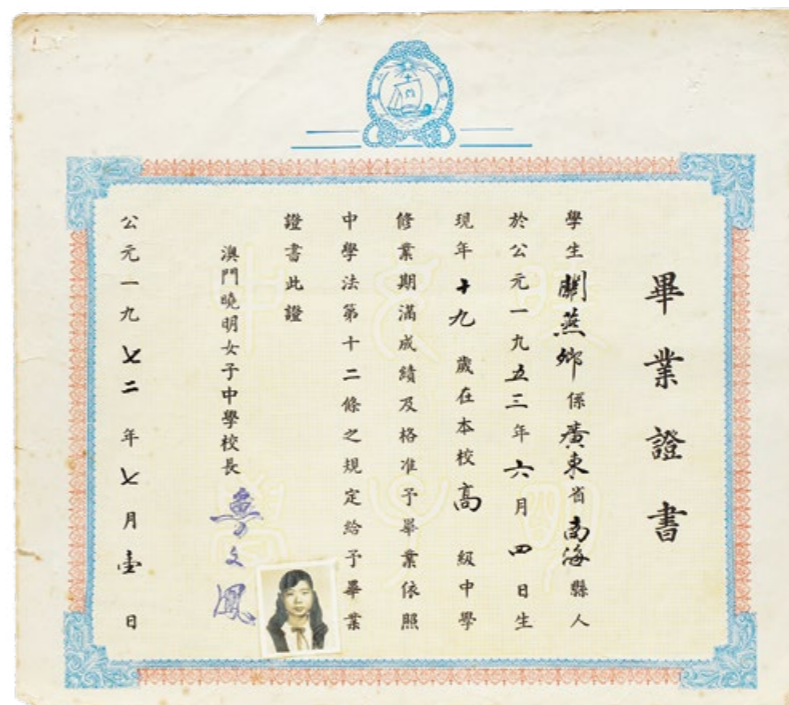 畢業證書
學生關燕鄉係廣東省南海縣人
於公元一九五三年六月四日生
現年十九歲在本校高級中學
修業期滿成績及格准予畢業依照
中學法第十二條之規定給予畢業
證書此證
澳門曉明女子中學校長
公元一九七二年七月壹日